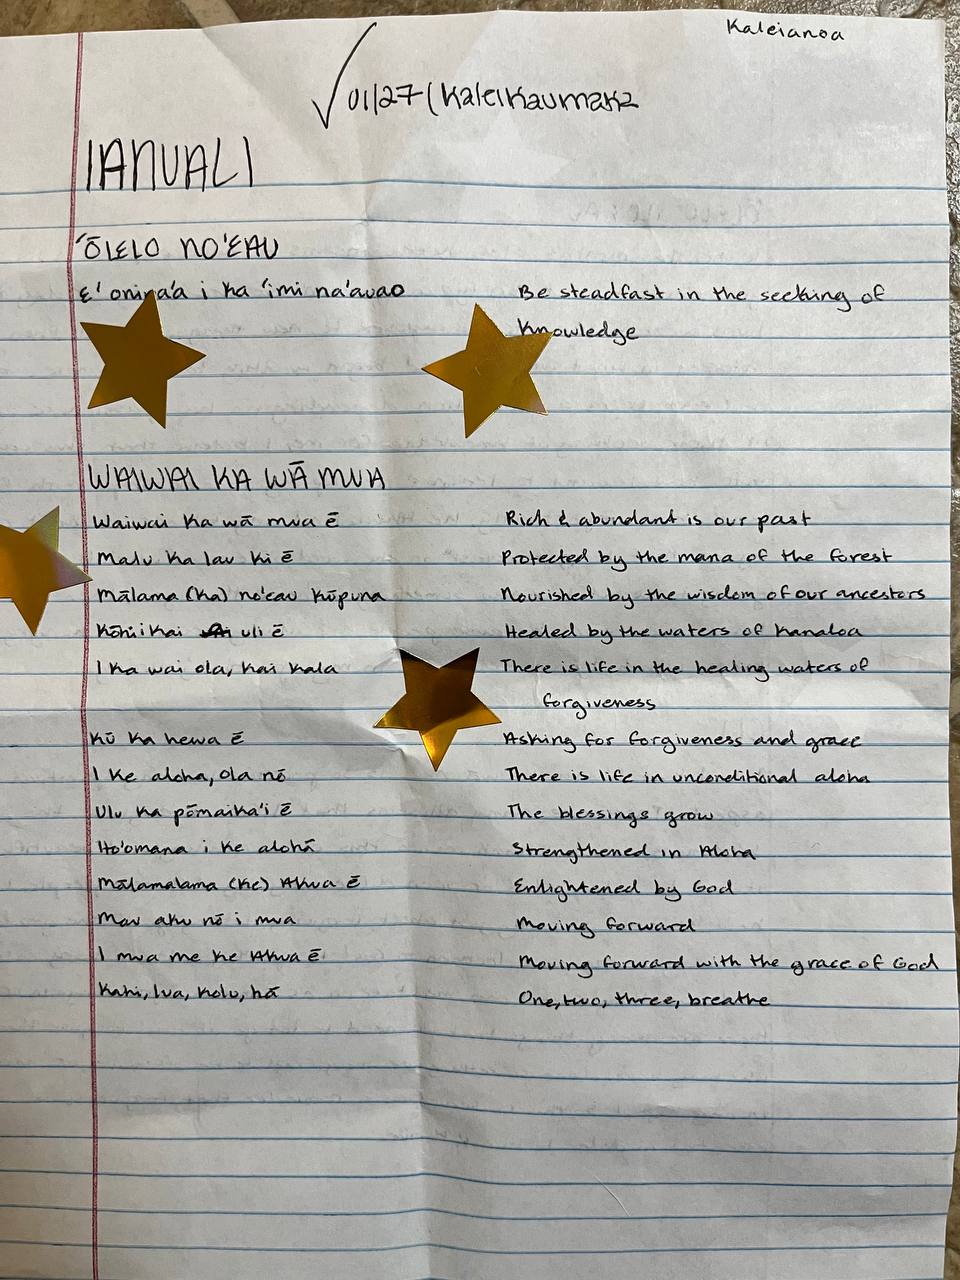 Kaleianoa
√01/27 (Kaleikaumaka
IANUALI
ʻŌLELO NO'EAU
E' onipa'a i ka 'imi na'auao
Be steadfast in the seeking of
Knowledge
WAIWAI KA WĀ MUA
Waiwai ka wā mua ē
Rich & abundant is our past
Malu ka lau ki ē
Protected by the mana of the forest
Mālama (ka) no'eau kūpuna
Nourished by the wisdom of our ancestors
kai uli ē
Healed by the waters of Kanaloa
I ka wai ola, kai kala
There is life in the healing waters of
forgiveness
Kū ka hewa ē
Asking for forgiveness and grace
I ke aloha, ola nō
There is life in unconditional aloha
Ulu ka pōmaika'i ē
The blessings grow
Ho'omana i ke alohā
Strengthened in Aloha
Mālamalama (ke) Akua ē
Enlightened by God
Mau aku nō i mua
Moving forward
I mua me ke Akua ē
Moving forward with the grace of God
Kahi, lua, kolu, hā
One, two, three, breathe